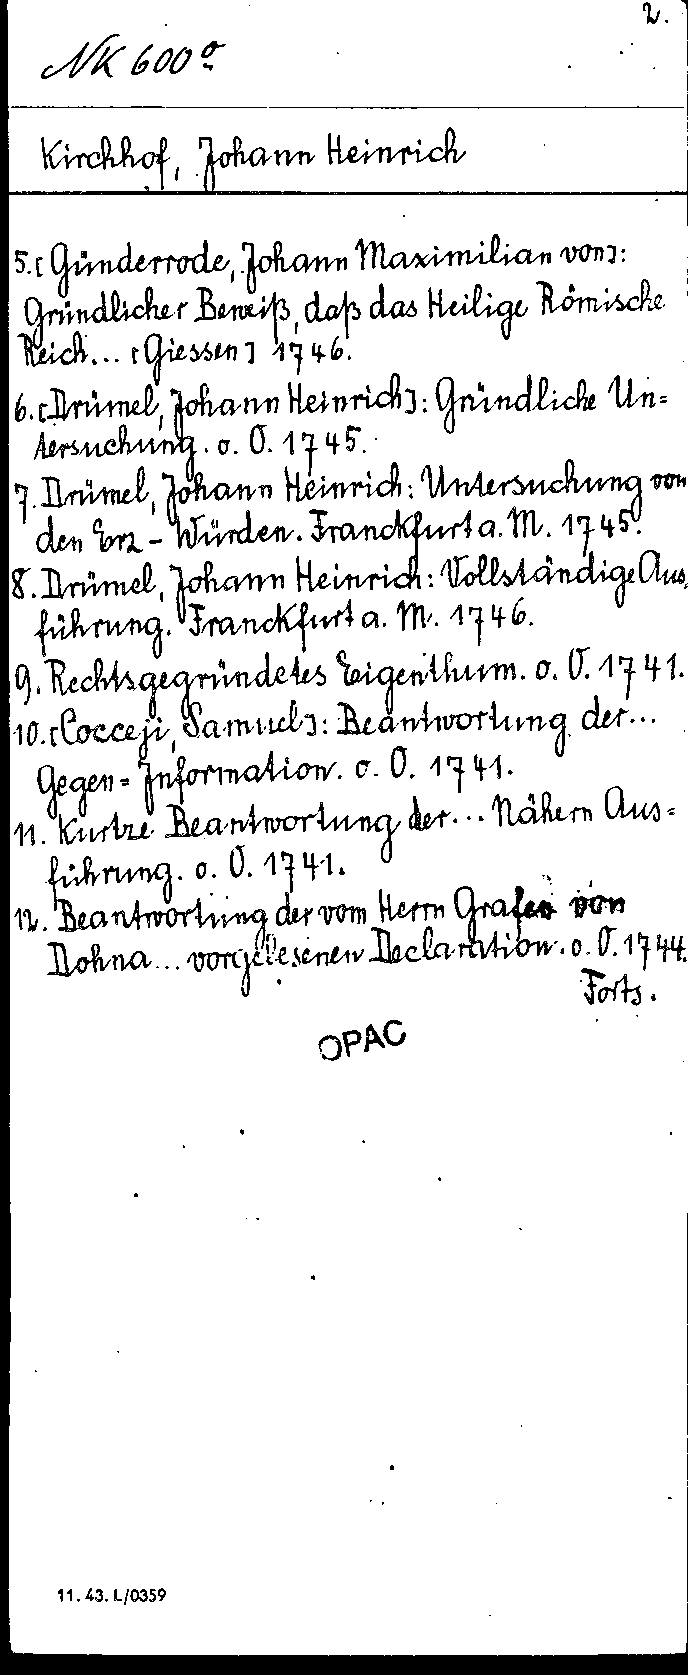 2.
NK 600º
Kirchhof, Johann Heinrich
5. [Günderrode, Johann Maximilian von]:
Gründlicher Beweiß, daß das Heilige Römische
Reich... [Giessen] 1746.
6. [Drümel, Johann Heinrich]: Gründliche Un=
tersuchung. o. O. 1745.
7. Drümel, Johann Heinrich: Untersuchung von
den Erz - Würden. Franckfurt a. M. 1745.
8. Drümel, Johann Heinrich: Vollständige Aus=
führung. Franckfurt a. M. 1746.
9. Rechtsgegründetes Eigenthum. o. O. 1741.
10. [Cocceji, Samuel]: Beantwortung der...
Gegen=Information. o. O. 1741.
11. Kurtze Beantwortung der... Nähern Aus=
führung. o. O. 1741.
12. Beantwortung der vom Herrn Grafen von
Dohna... vorgelesenen Declaration. o. O. 1744.
Forts.
OPAC
11. 43. L/0359